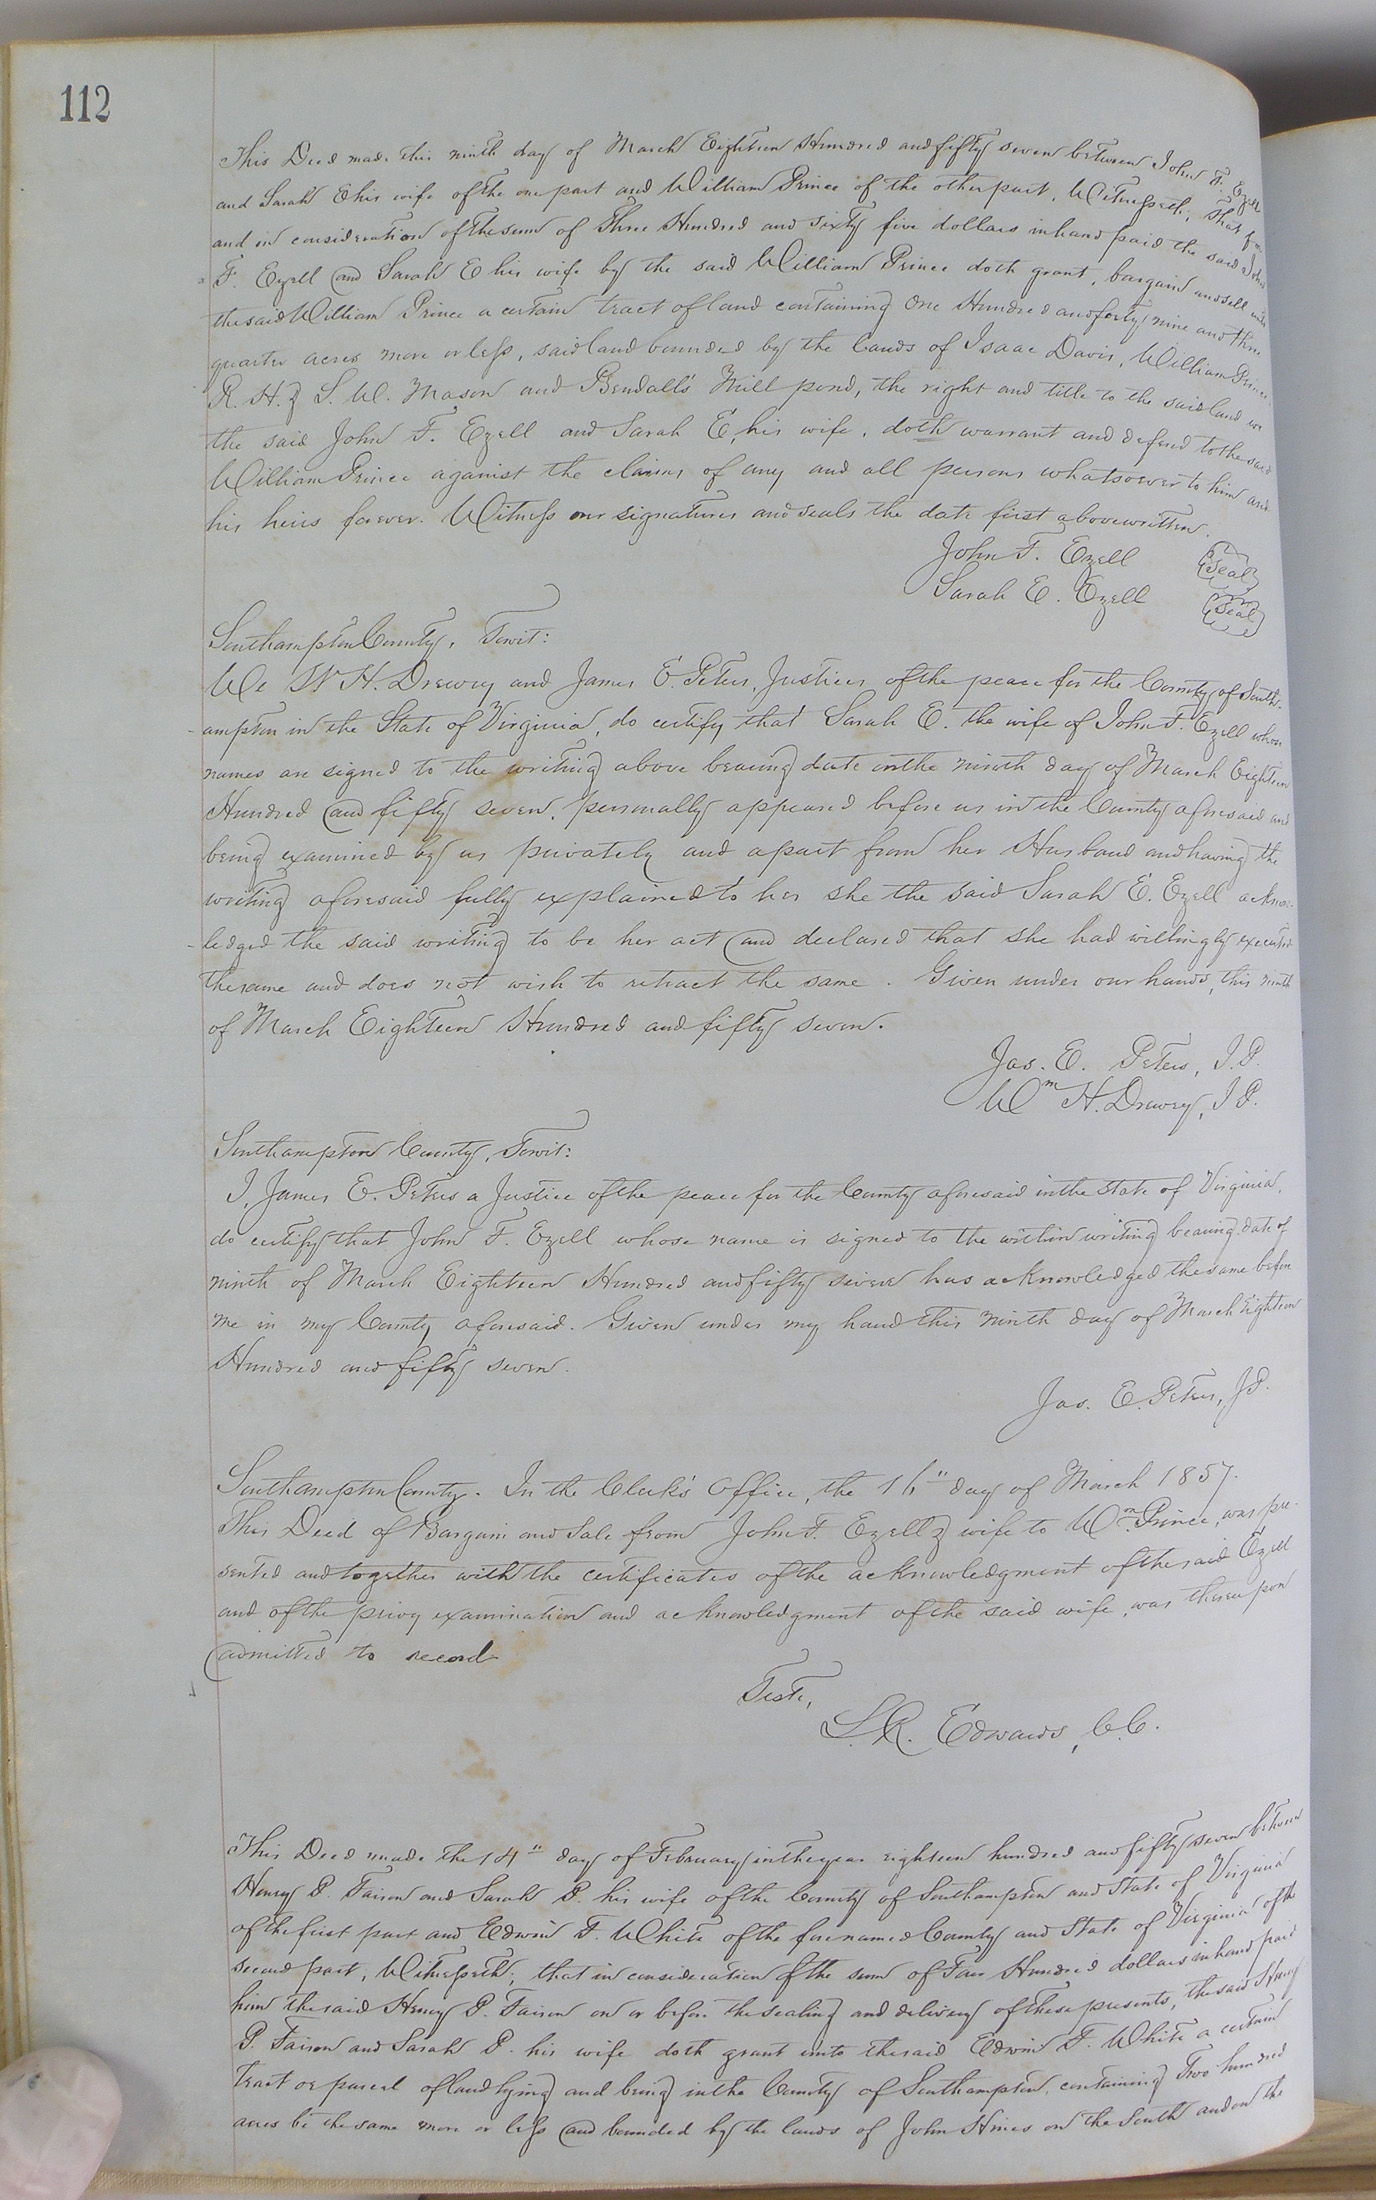 112
This Deed made this ninth day of March Eighteen Hundred and fifty seven between John F. Ezell
and Sarah E his wife of the one part and William Prince of the other part, Witnesseth, That for
and in consideration of the sum of Three Hundred and sixty five dollars in hand paid the said John
F. Ezell and Sarah E his wife by the said William Prince doth grant, bargain and sell unto
the said William Prince a certain tract of land containing One Hundred and forty nine and three
quarter acres more or less, said land bounded by the lands of Isaac Davis, William Prince
R. H. & L. W. Mason and Bendall's Mill pond, the right and title to the said land we
the said John F. Ezell and Sarah E, his wife, doth warrant and defend to the said
William Prince aganist the claims of any and all persons whatsoever to him and
his heirs forever. Witness our signatures and seals the date first above written.
John F. Ezell Seal
Sarah E. Ezell Seal
Southampton County, Towit:
We W H. Drewry and James E. Peters, Justices of the peace for the County of South-
ampton in the State of Virginia, do certify that Sarah E. the wife of John F. Ezell whose
names are signed to the writing above bearing date on the ninth day of March Eighteen
Hundred and fifty seven, personally appeared before us in the County aforesaid and
being examined by us privately and apart from her Husband and having the
writing aforesaid fully explained to her she the said Sarah E. Ezell acknow-
ledged the said writing to be her act and declared that she had willingly executed
the same and does not wish to retract the same. Given under our hands, this ninth
of March Eighteen Hundred and fifty seven.
Jas. E. Peters, J.P.
Wm H. Drewry, J.P.
Southampton County, Towit:
I, James E. Peters a Justice of the peace for the County aforesaid in the State of Virginia,
do certify that John F. Ezell whose name is signed to the within writing bearing date of
ninth of March Eighteen Hundred and fifty seven has acknowledged the same before
me in my County aforesaid. Given under my hand this ninth day of March Eighteen
Hundred and fifty seven.
Jas. E. Peters, J.P.
Southampton County. In the Clerk's Office, the 16" day of March 1857.
This Deed of Bargain and Sale from John F. Ezell & wife to Wm. Prince, was pre-
sented and together with the certificates of the acknowledgment of the said Ezell
and of the privy examination and acknowledgment of the said wife, was thereupon
admitted to record
Teste,
L. R. Edwards, C.C.
This Deed made the 14" day of February in the year eighteen hundred and fifty seven between
Henry P. Faison and Sarah P. his wife of the County of Southampton and State of Virginia
of the first part and Edwin F. White of the forenamed County and State of Virginia of the
second part, Witnesseth, that in consideration of the sum of Four Hundred dollars in hand paid
him the said Henry P. Faison on or before the sealing and delivery of these presents, the said Henry
P. Faison and Sarah P. his wife doth grant unto the said Edwin F. White a certain
tract or parcel of land lying and being in the County of Southampton, containing Two hundred
acres be the same more or less and bounded by the lands of John Hines on the South and on the